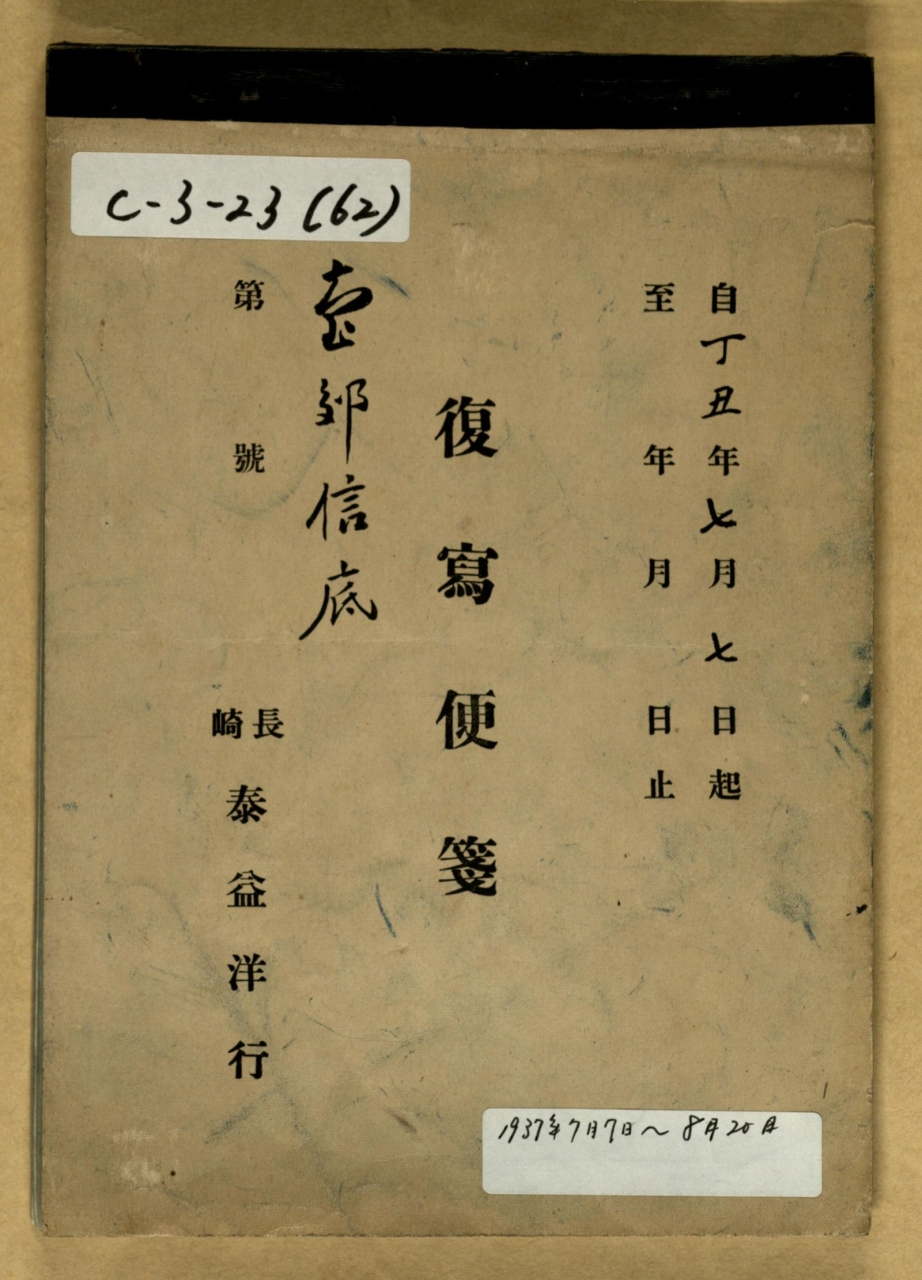 C-3-23 (62)
自丁丑年七月七日起
至 年 月 日止
復寫便箋
臺郊信底
第 號
長崎 泰益洋行
1937年7月7日～8月20日